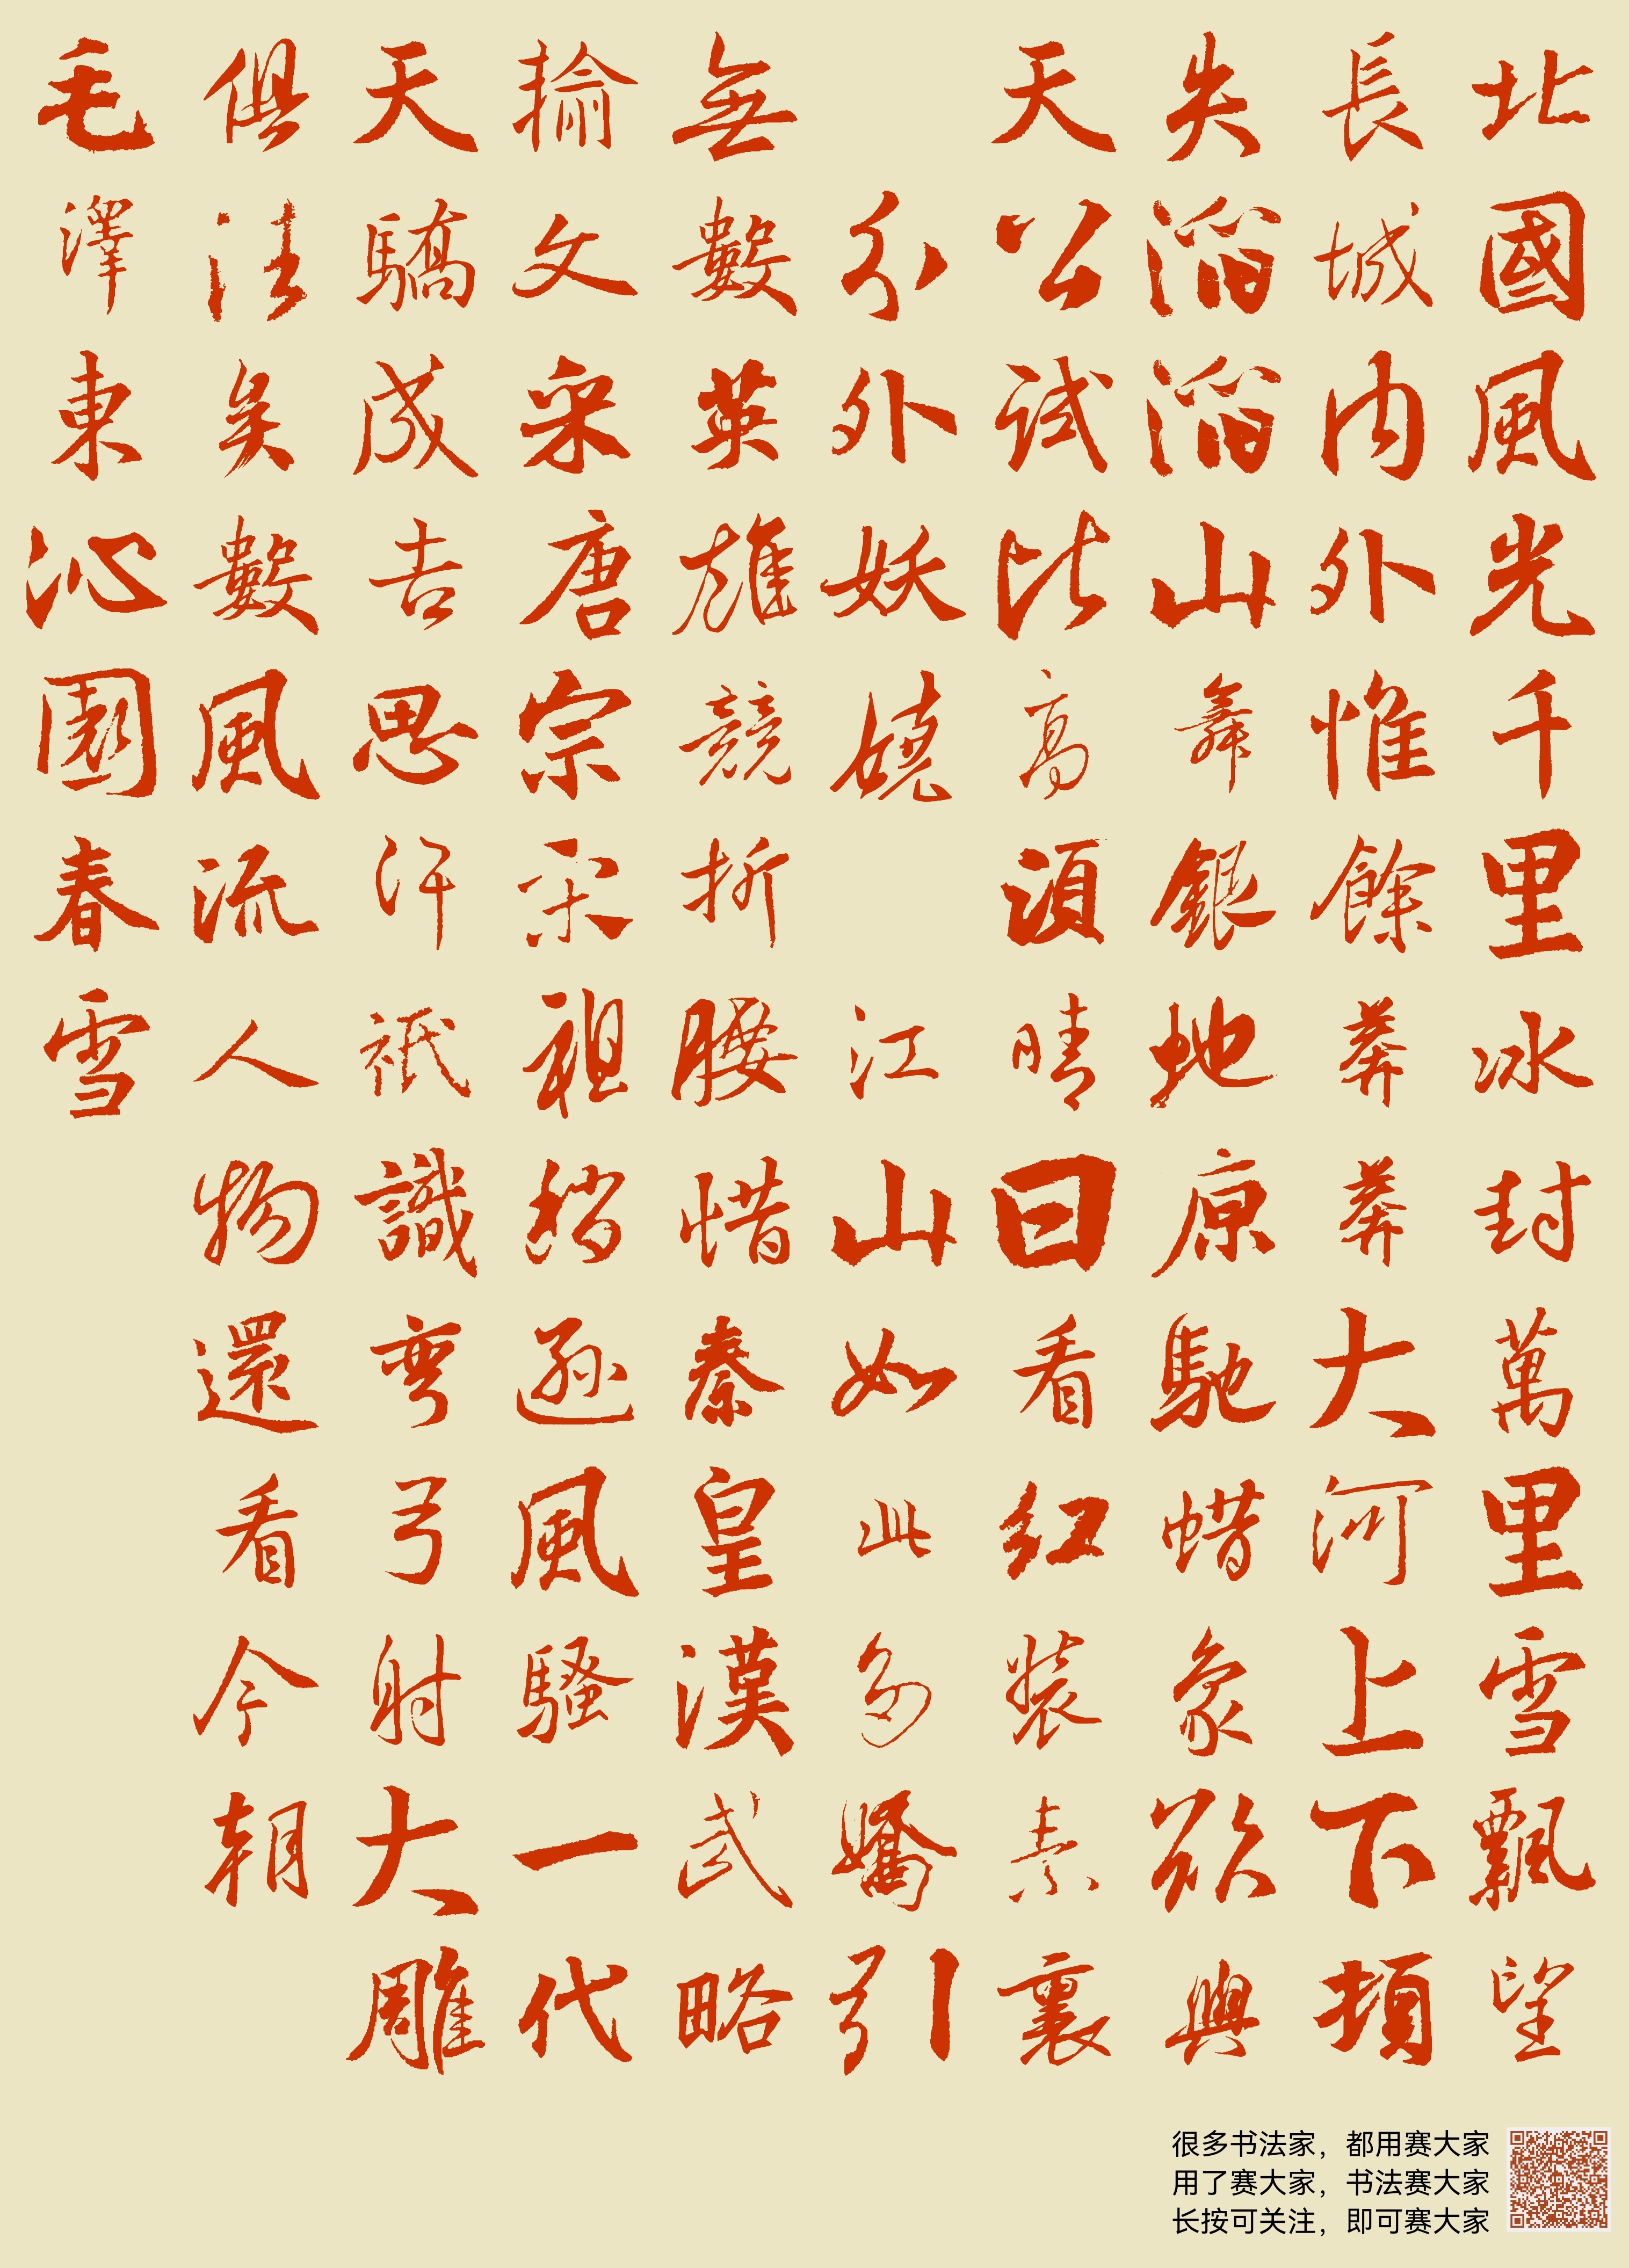 北國風光千里冰封萬里雪飄望
長城内外惟餘莽莽大河上下頓
失滔滔山舞銀虵原馳蜡象欲與
天公试比高湏晴日看红裝素裹
分外妖嬈 江山如此多嬌引
無數英雄競折腰惜秦皇漢武略
輸文采唐宗宋祖稍遜風騷一代
天驕成吉思汗祇識弯弓射大雕
俱往矣數風流人物還看今朝
毛澤東沁園春雪
很多书法家，都用赛大家
用了赛大家，书法赛大家
长按可关注，即可赛大家